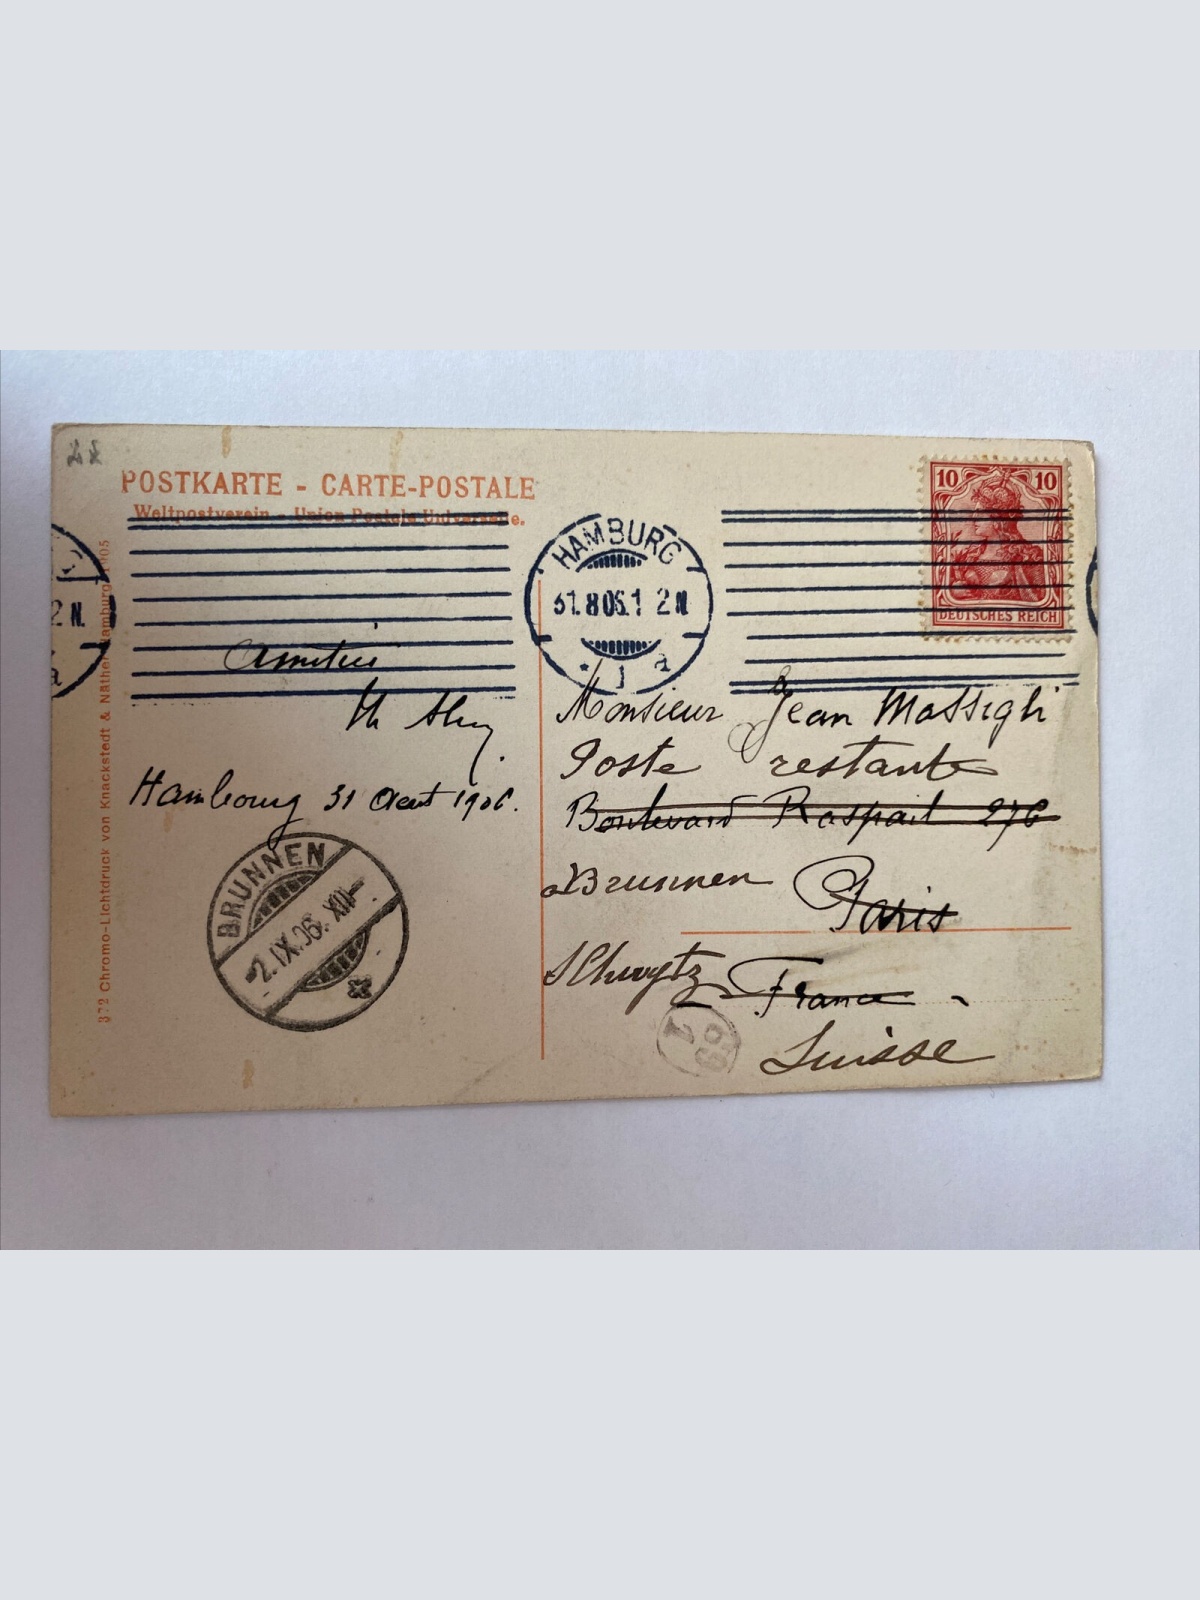 POSTKARTE - CARTE-POSTALE
Weltpostverein - Union Postale Universelle.
10 10
DEUTSCHES REICH
HAMBURG
31.8 06.1 2 N
* 1 a
2 N.
a
Amitiés
Hambourg 31 Aout 1906.
BRUNNEN
2.IX.06. XII
Monsieur Jean Massigli
Poste restante
Boulevard Raspail 276
Brunnen Paris
Schwytz France
Suisse
372 Chromo-Lichtdruck von Knackstedt & Näther, Hamburg 1905